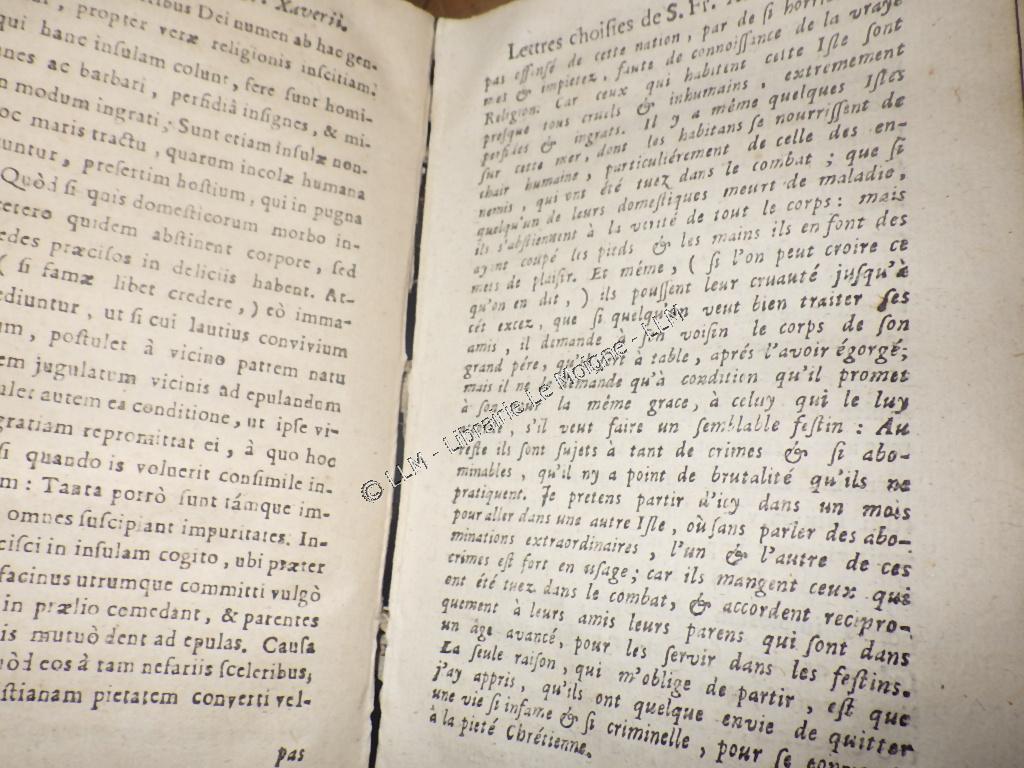 Xaverii.
ribus Dei numen ab hac gen-
, propter veræ religionis inscitiam.
qui hanc insulam colunt, fere sunt homi-
nes ac barbari, perfidiâ insignes, & mi-
n modum ingrati; Sunt etiam insulæ non-
oc maris tractu, quarum incolæ humana
untur, presertim hostium, qui in pugna
Quòd si quis domesticorum morbo in-
cetero quidem abstinent corpore, sed
edes præcisos in deliciis habent. At-
( si famæ libet credere, ) eò imma-
ediuntur, ut si cui lautius convivium
um, postulet à vicino patrem natu
em jugulatum vicinis ad epulandum
ulet autem ea conditione, ut ipse vi-
gratiam repromittat ei, à quo hoc
si quando is voluerit consimile in-
m : Tanta porrò sunt támque im-
omnes suscipiant impuritates. In-
cisci in insulam cogito, ubi præter
facinus utrumque committi vulgò
in prælio comedant, & parentes
is mutuò dent ad epulas. Causa
uòd eos à tam nefariis sceleribus,
stianam pietatem converti vel-
pas
Lettres choisies de S. Fr.
pas offensé de cette nation, par de si horri
mes & impietez, faute de connoissance de la vraye
Religion. Car ceux qui habitent cette Isle sont
presque tous cruels & inhumains, extremement
perfides & ingrats. Il y a même quelques Isles
sur cette mer, dont les habitans se nourrissent de
chair humaine, particuliérement de celle des en-
nemis, qui ont été tuez dans le combat ; que si
quelqu'un de leurs domestiques meurt de maladie,
ils s'abstiennent à la verité de tout le corps : mais
ayant coupé les pieds & les mains ils en font des
mets de plaisir. Et même, ( si l'on peut croire ce
qu'on en dit, ) ils poussent leur cruauté jusqu'à
cét excez, que si quelqu'un veut bien traiter ses
amis, il demande à son voisin le corps de son
grand pére, qu'il sert à table, aprés l'avoir égorgé;
mais il ne le demande qu'à condition qu'il promet
à son tour la même grace, à celuy qui le luy
, s'il veut faire un semblable festin : Au
reste ils sont sujets à tant de crimes & si abo-
minables, qu'il ny a point de brutalité qu'ils ne
pratiquent. Je pretens partir d'icy dans un mois
pour aller dans une autre Isle, où sans parler des abo-
minations extraordinaires, l'un & l'autre de ces
crimes est fort en usage; car ils mangent ceux qui
ont été tuez dans le combat, & accordent recipro-
quement à leurs amis leurs parens qui sont dans
un âge avancé, pour les servir dans les festins.
La seule raison, qui m'oblige de partir, est que
j'ay appris, qu'ils ont quelque envie de quitter
une vie si infame & si criminelle, pour se
à la pieté Chrétienne.
© LLM - Librairie Le Moigne - LLM